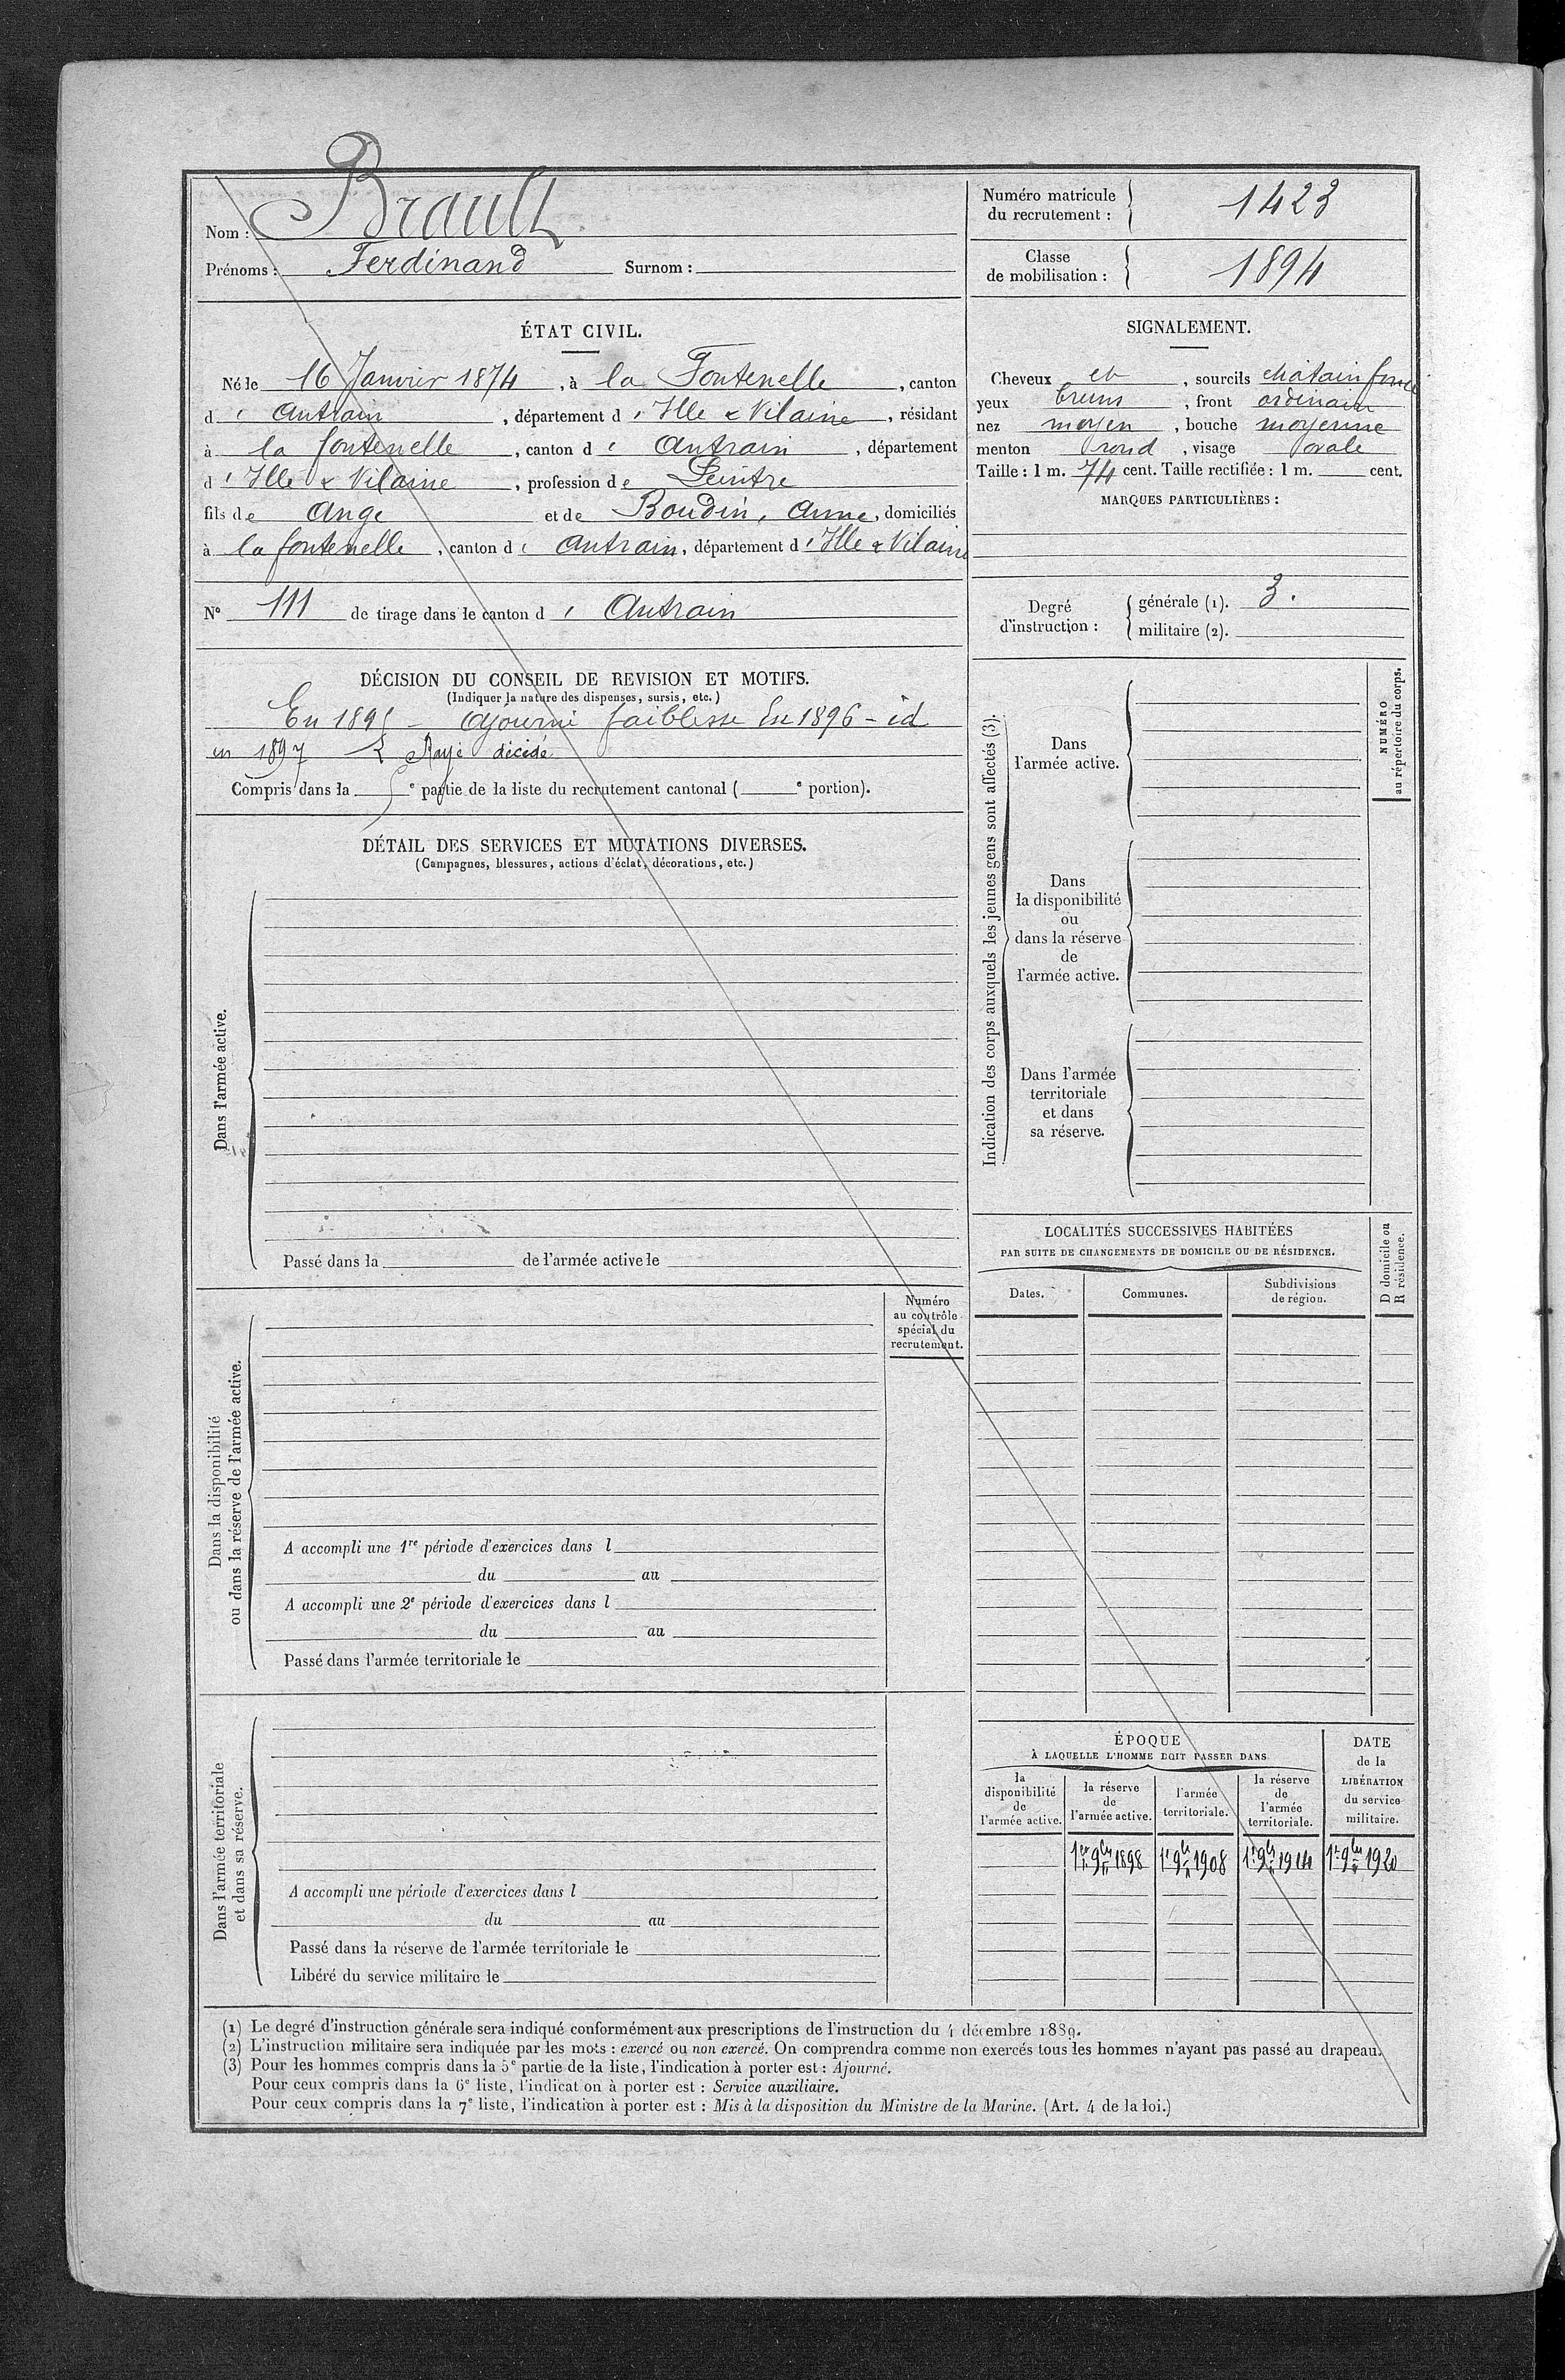 Nom : Brault
Prénoms : Ferdinand Surnom :
Numéro matricule
du recrutement : 1423
Classe
de mobilisation : 1894
ÉTAT CIVIL.
Né le 16 Janvier 1874, à la Fontenelle, canton
d' Antrain, département d' Ille & Vilaine, résidant
à la fontenelle, canton d' Antrain, département
d' Ille & Vilaine, profession de Peintre
fils de Ange et de Boudin, Anne, domiciliés
à la fontenelle, canton d' Antrain, département d' Ille & Vilaine
N° 111 de tirage dans le canton d' Antrain
SIGNALEMENT.
Cheveux et, sourcils chatain foncé
yeux bruns, front ordinaire
nez moyen, bouche moyenne
menton rond, visage ovale
Taille : 1 m. 74 cent. Taille rectifiée : 1 m. cent.
MARQUES PARTICULIÈRES :
Degré
d'instruction :
générale (1). 3.
militaire (2).
DÉCISION DU CONSEIL DE REVISION ET MOTIFS.
(Indiquer la nature des dispenses, sursis, etc.)
En 1895 – ajourné faiblesse En 1896 – id
en 1897 Rayé décédé
Compris dans la e partie de la liste du recrutement cantonal ( e portion).
DÉTAIL DES SERVICES ET MUTATIONS DIVERSES.
(Campagnes, blessures, actions d'éclat, décorations, etc.)
Dans l'armée active.
Passé dans la de l'armée active le
Numéro
au contrôle
spécial du
recrutement.
Dans la disponibilité
ou dans la réserve de l'armée active.
A accompli une 1re période d'exercices dans l
du au
A accompli une 2e période d'exercices dans l
du au
Passé dans l'armée territoriale le
Dans l'armée territoriale
et dans sa réserve.
A accompli une période d'exercices dans l
du au
Passé dans la réserve de l'armée territoriale le
Libéré du service militaire le
Indication des corps auxquels les jeunes gens sont affectés (3).
Dans
l'armée active.
Dans
la disponibilité
ou
dans la réserve
de
l'armée active.
Dans l'armée
territoriale
et dans
sa réserve.
NUMÉRO
au répertoire du corps.
LOCALITÉS SUCCESSIVES HABITÉES
PAR SUITE DE CHANGEMENTS DE DOMICILE OU DE RÉSIDENCE.
Dates.
Communes.
Subdivisions
de région.
D domicile ou
R résidence.
ÉPOQUE
À LAQUELLE L'HOMME DOIT PASSER DANS
la
disponibilité
de
l'armée active.
la réserve
de
l'armée active.
l'armée
territoriale.
la réserve
de
l'armée
territoriale.
DATE
de la
LIBÉRATION
du service
militaire.
1er 9bre 1898 1r 9bre 1908 1r 9bre 1914 1r 9bre 1920
(1) Le degré d'instruction générale sera indiqué conformément aux prescriptions de l'instruction du 4 décembre 1889.
(2) L'instruction militaire sera indiquée par les mots : exercé ou non exercé. On comprendra comme non exercés tous les hommes n'ayant pas passé au drapeau.
(3) Pour les hommes compris dans la 5e partie de la liste, l'indication à porter est : Ajourné.
Pour ceux compris dans la 6e liste, l'indicat on à porter est : Service auxiliaire.
Pour ceux compris dans la 7e liste, l'indication à porter est : Mis à la disposition du Ministre de la Marine. (Art. 4 de la loi.)